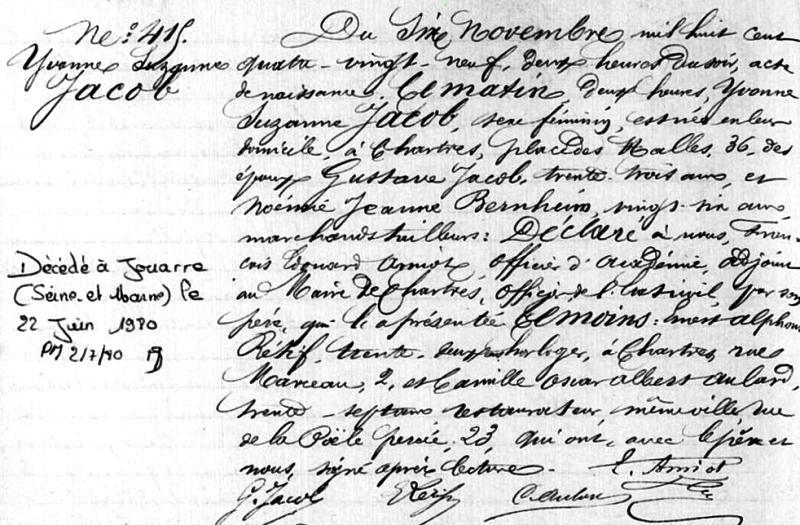 Ne: 415.
Yvonne Suzanne
Jacob
Du Six Novembre mil huit cent
quatre-vingt-neuf, deux heures du soir, acte
de naissance. Ce matin deux heures, Yvonne
Suzanne Jacob, sexe féminin, est née en leur
domicile, à Chartres, place des Halles, 36, des
époux Gustave Jacob, trente-trois ans, et
Noémie Jeanne Bernheim, vingt-six ans,
marchands tailleurs: Déclaré à nous, Fran-
çois Edouard Amiot, officier d'académie, adjoint
au Maire de Chartres, officier de l'état civil, par son
père, qui l'a présentée Témoins: Alphonse
Rétif, trente horloger, à Chartres, rue
Marceau, 2, et Camille Oscar Albert Aulard,
trente-sept ans restaurateur même ville rue
de la Poële percée, 23, qui ont, avec le père et
nous, signé après lecture.
E. Amiot
G. Jacob
Décédé à Jouarre
(Seine-et-Marne) le
22 Juin 1970
2/7/70